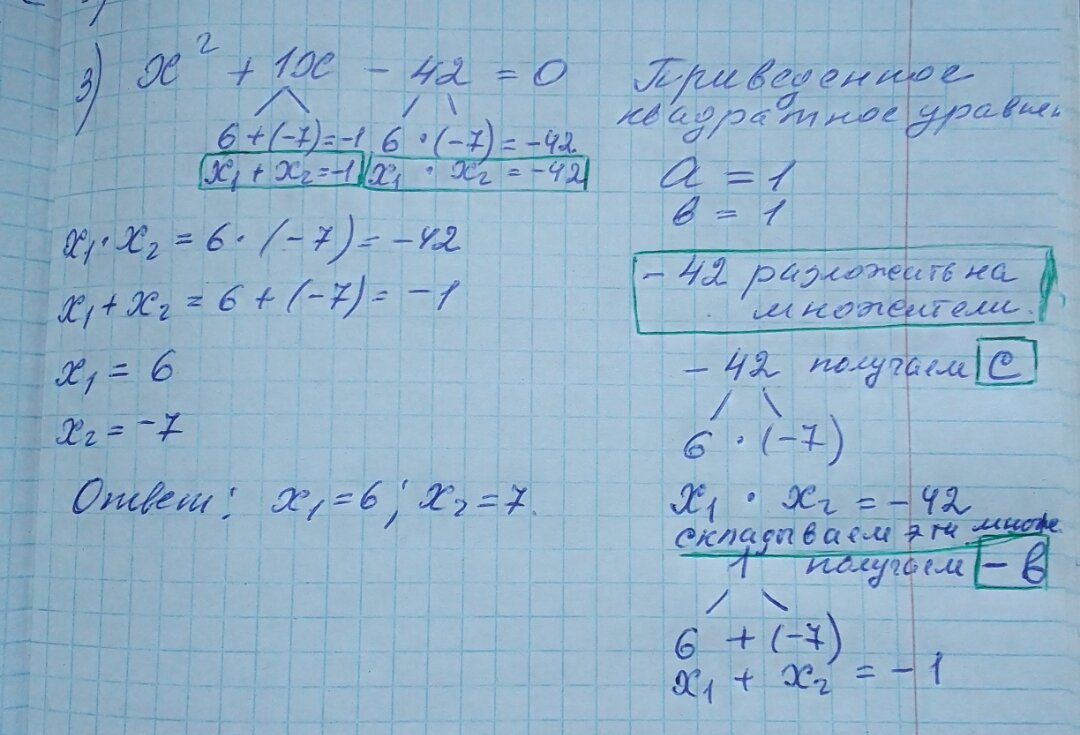 3) x² + 1x - 42 = 0
6 + (-7) = -1 6 · (-7) = -42
x₁ + x₂ = -1 x₁ · x₂ = -42
x₁ · x₂ = 6 · (-7) = -42
x₁ + x₂ = 6 + (-7) = -1
x₁ = 6
x₂ = -7
Ответ: x₁ = 6; x₂ = 7.
Приведенное
квадратное уравнен
a = 1
в = 1
- 42 разложить на
множители.
- 42 получаем c
6 · (-7)
x₁ · x₂ = -42
складываем эти множ
1 получаем - в
6 + (-7)
x₁ + x₂ = -1